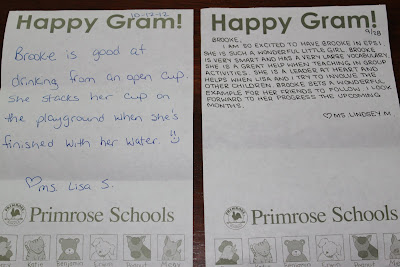 Happy Gram!
10-12-12
Brooke is good at
drinking from an open cup.
She stacks her cup on
the playground when she's
finished with her water.
ms. Lisa S.
Primrose Schools
Katie
Benjamin
Happy Gram!
9/28
BROOKE,
I AM SO EXCITED TO HAVE BROOKE IN EPS1.
SHE IS SUCH A WONDERFUL LITTLE GIRL. BROOKE
IS VERY SMART AND HAS A VERY LARGE VOCABULARY.
SHE IS A GREAT HELP WHEN TEACHING IN GROUP
ACTIVITIES. SHE IS A LEADER AT HEART AND
HELPS WHEN LISA AND I TRY TO INVOLVE THE
OTHER CHILDREN. BROOKE SETS A WONDERFUL
EXAMPLE FOR HER FRIENDS TO FOLLOW. I LOOK
FORWARD TO HER PROGRESS THE UPCOMING
MONTHS.
MS. LINDSEY M
Primrose Schools